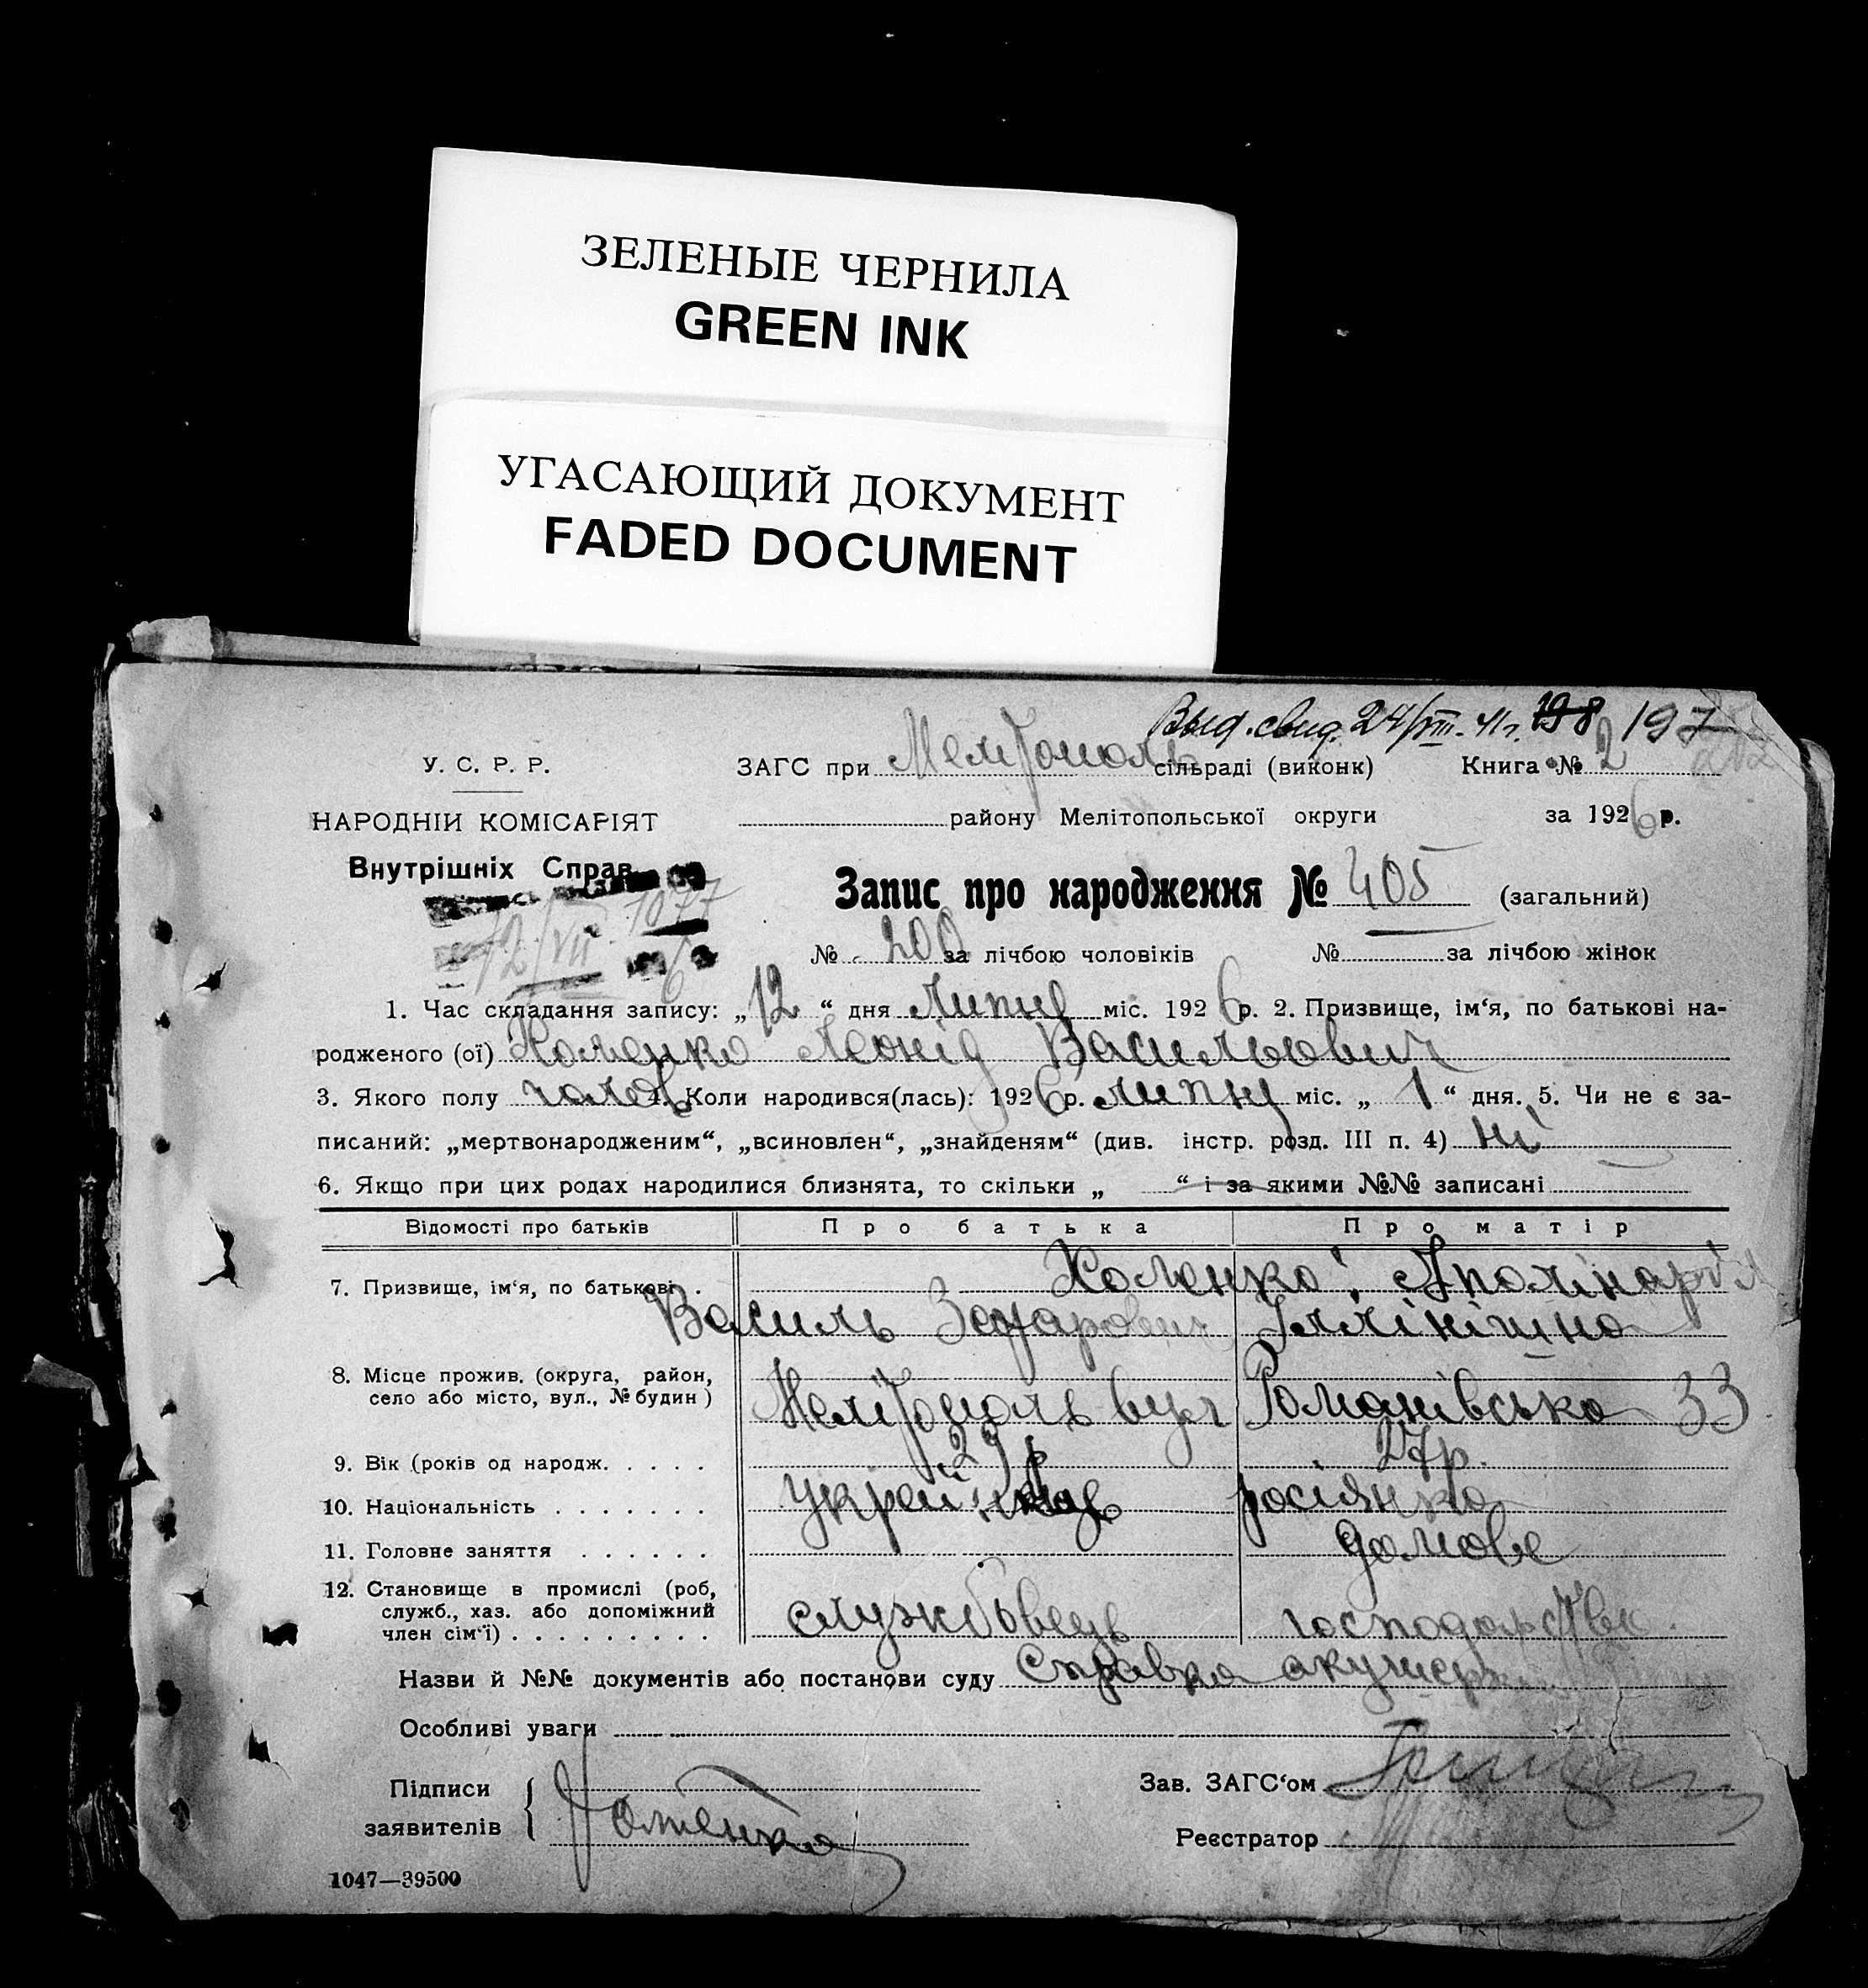 ЗЕЛЕНЫЕ ЧЕРНИЛА
GREEN INK
УГАСАЮЩИЙ ДОКУМЕНТ
FADED DOCUMENT
Выд. свид. 24/VIII-41г. 198 197
У. С. Р. Р.
ЗАГС при Мелітополь сільраді (виконк) Книга № 2
НАРОДНІЙ КОМІСАРІЯТ
району Мелітопольської округи за 1926 р.
Внутрішніх Справ
Запис про народження № 405 (загальний)
12/VII 1077
6
№ 200 за лічбою чоловіків № за лічбою жінок
1. Час складання запису: „12“ дня Липня міс. 1926 р. 2. Призвище, ім‘я, по батькові на-
родженого (ої) Хоменко Леонід Васильович
3. Якого полу чолов 4. Коли народився(лась): 1926 р. липня міс. „1“ дня. 5. Чи не є за-
писаний: „мертвонародженим“, „всиновлен“, „знайденям“ (див. інстр. розд. III п. 4) ні
6. Якщо при цих родах народилися близнята, то скільки „ “ і за якими №№ записані
Відомості про батьків Про батька Про матір
7. Призвище, ім‘я, по батькові . Хоменко, Аполінарія
Василь Захарович Іллінішна
8. Місце прожив. (округа, район,
село або місто, вул., № будин) Мелітополь вул Романівська 33
9. Вік (років од народж. . . . . 29 р 27р.
10. Національність . . . . . . . україінець росіянка
11. Головне заняття . . . . . . домове
12. Становище в промислі (роб,
служб., хаз. або допоміжний
член сім‘ї) . . . . . . . . . службовець господарство
Назви й №№ документів або постанови суду Справка акушерки
Особливі уваги
Підписи
заявителів Хоменко
Зав. ЗАГС‘ом
Реєстратор
1047—39500